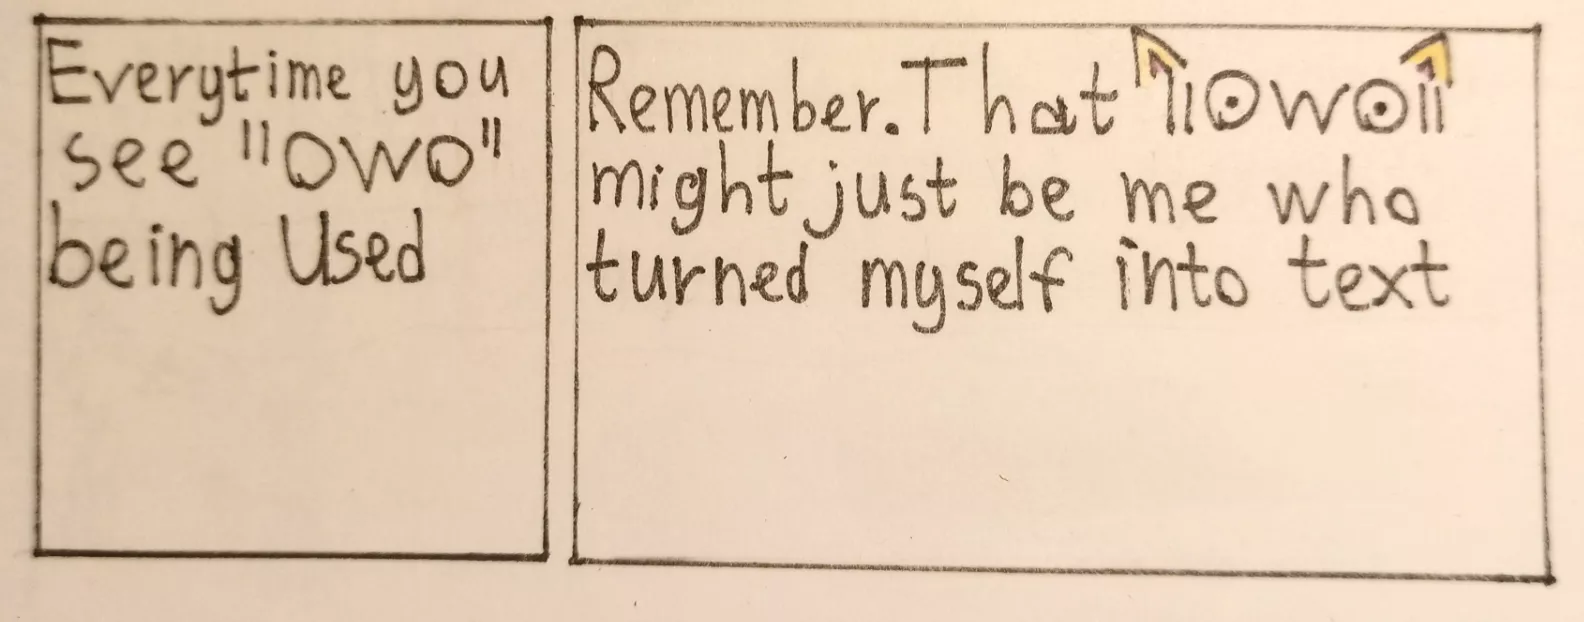 Everytime you
see "OWO"
being Used
Remember. That "OWO"
might just be me who
turned myself into text